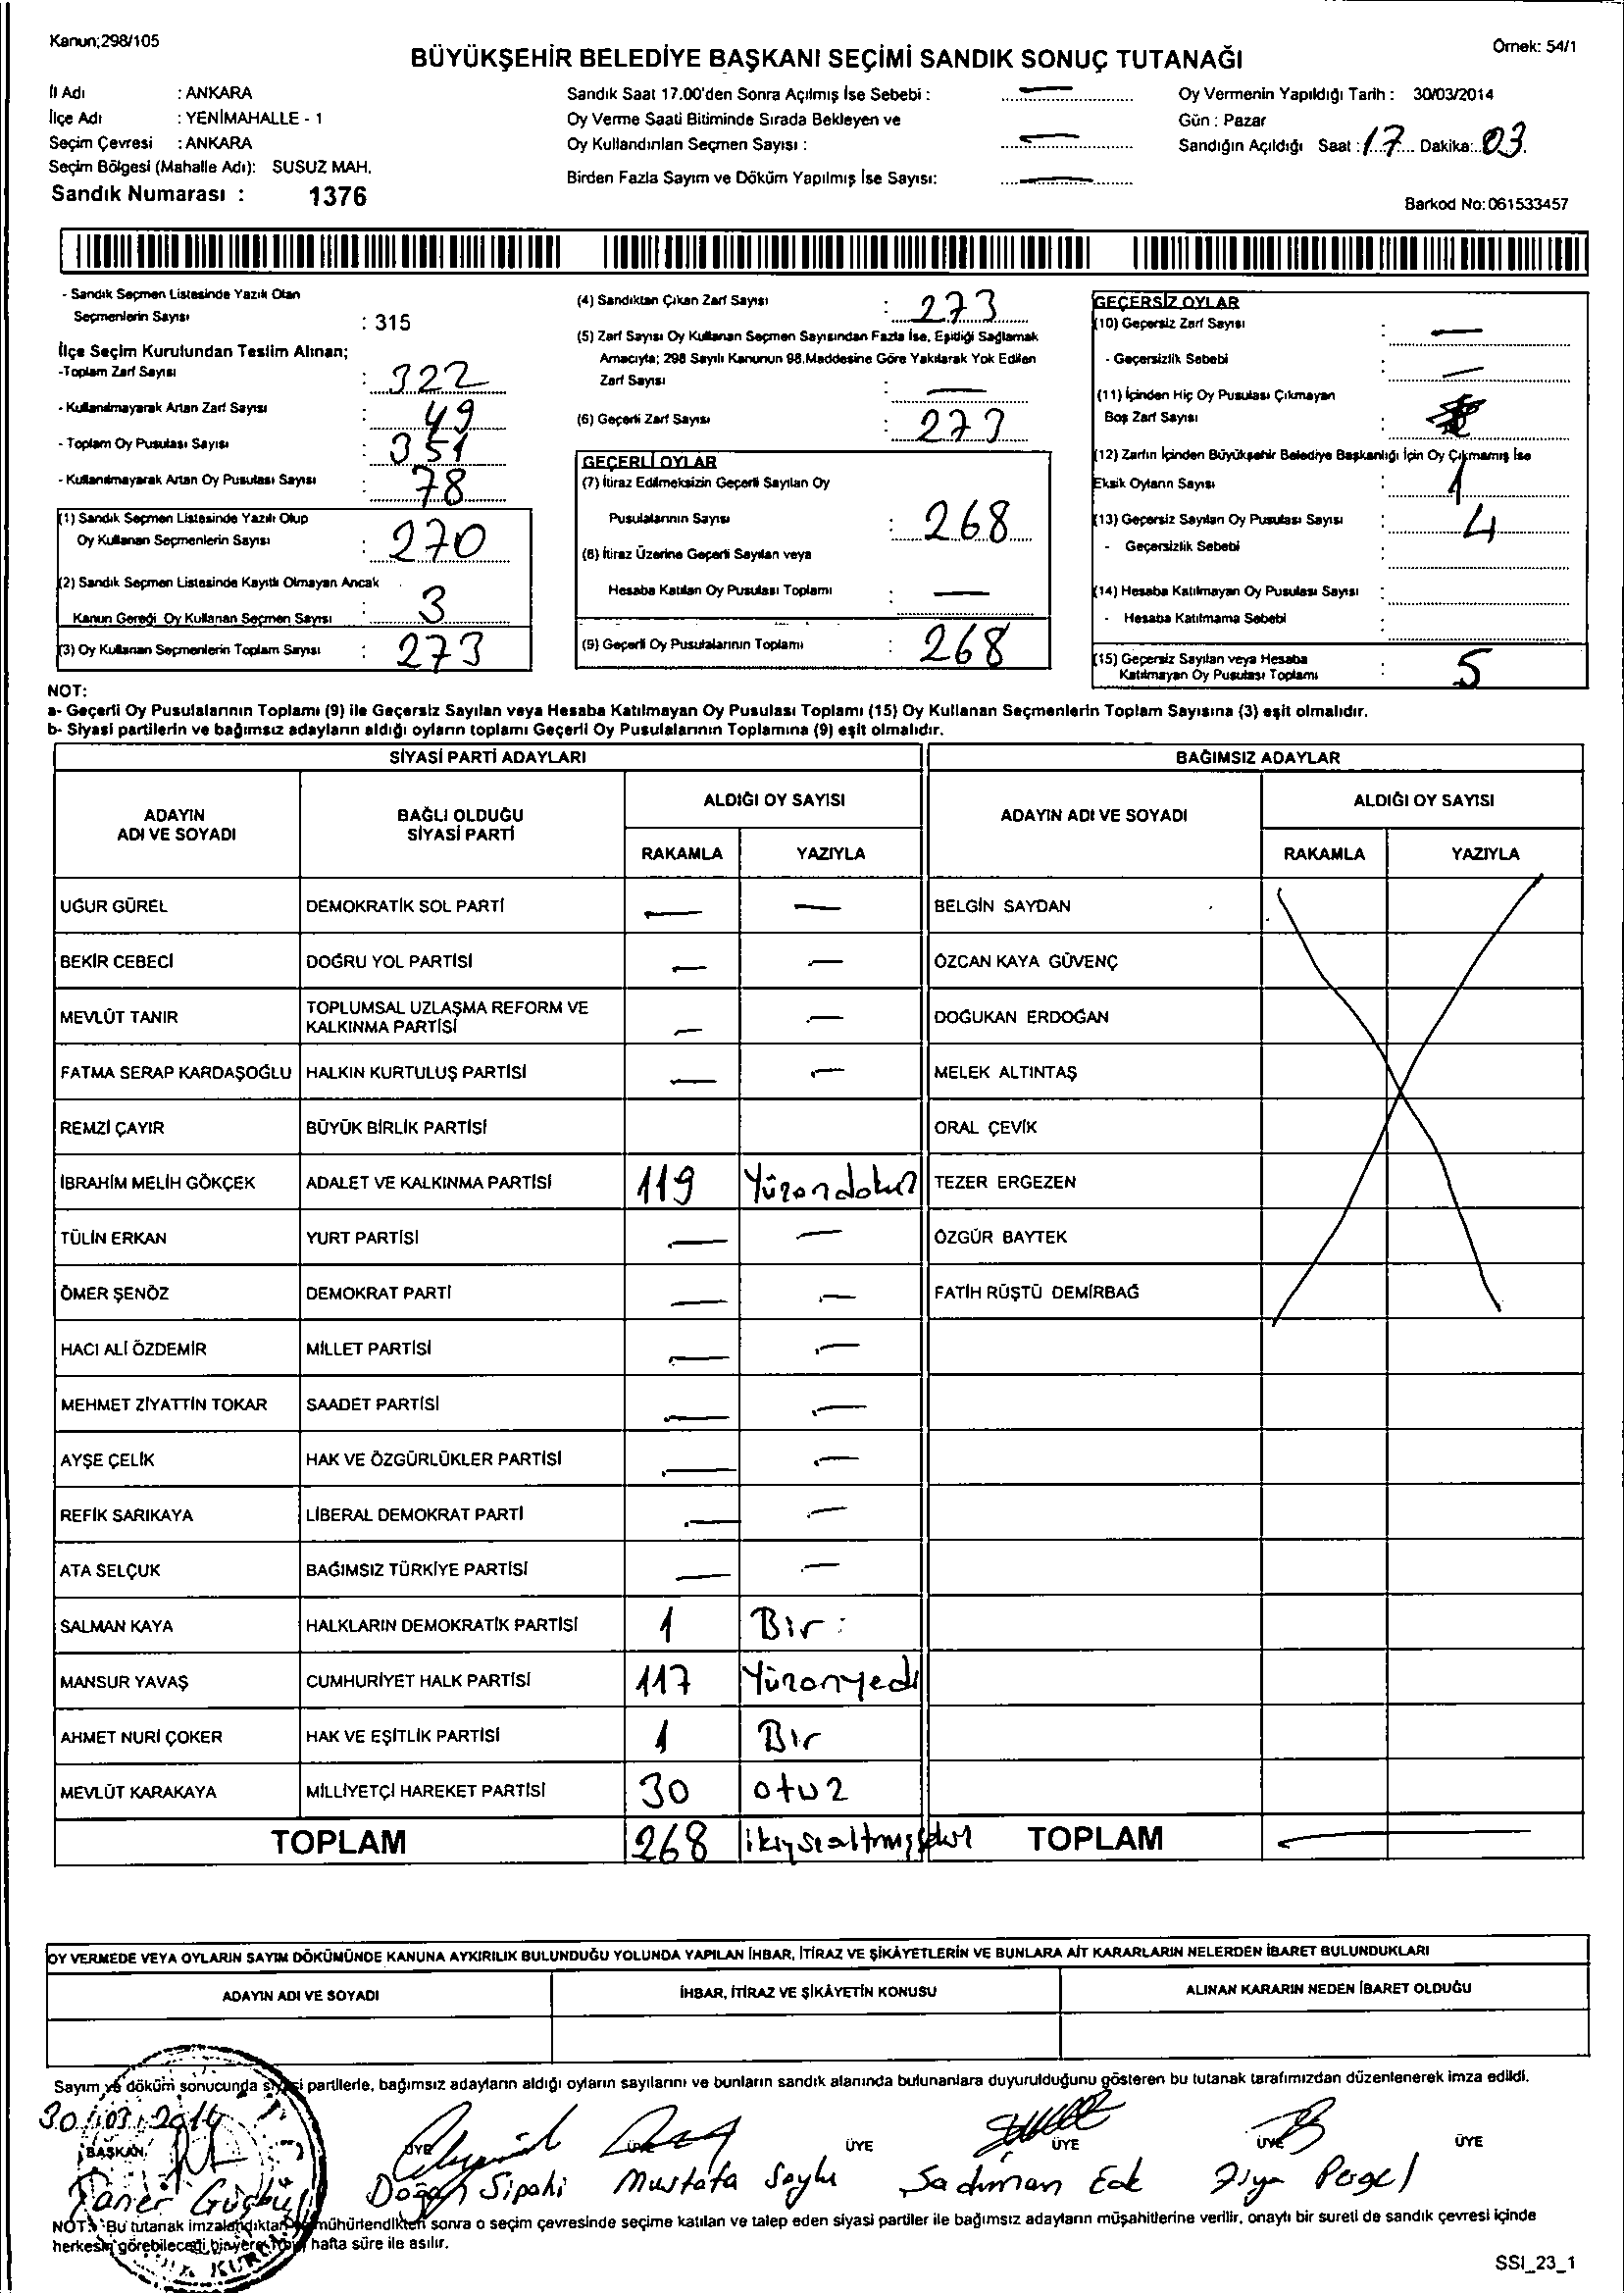 Kanun;298/105
Örnek: 54/1
BÜYÜKŞEHİR BELEDİYE BAŞKANI SEÇİMİ SANDIK SONUÇ TUTANAĞI
İl Adı : ANKARA
İlçe Adı : YENİMAHALLE - 1
Seçim Çevresi : ANKARA
Seçim Bölgesi (Mahalle Adı): SUSUZ MAH.
Sandık Numarası : 1376
Sandık Saat 17.00'den Sonra Açılmış İse Sebebi : —
Oy Verme Saati Bitiminde Sırada Bekleyen ve
Oy Kullandırılan Seçmen Sayısı : —
Birden Fazla Sayım ve Döküm Yapılmış İse Sayısı: —
Oy Vermenin Yapıldığı Tarih : 30/03/2014
Gün : Pazar
Sandığın Açıldığı Saat : 17 Dakika: 03
Barkod No: 061533457
- Sandık Seçmen Listesinde Yazılı Olan
Seçmenlerin Sayısı : 315
İlçe Seçim Kurulundan Teslim Alınan;
-Toplam Zarf Sayısı : 322
- Kullanılmayarak Artan Zarf Sayısı : 49
- Toplam Oy Pusulası Sayısı : 351
- Kullanılmayarak Artan Oy Pusulası Sayısı : 78
(1) Sandık Seçmen Listesinde Yazılı Olup
Oy Kullanan Seçmenlerin Sayısı : 270
(2) Sandık Seçmen Listesinde Kayıtlı Olmayan Ancak
Kanun Gereği Oy Kullanan Seçmen Sayısı : 3
(3) Oy Kullanan Seçmenlerin Toplam Sayısı : 273
(4) Sandıktan Çıkan Zarf Sayısı : 273
(5) Zarf Sayısı Oy Kullanan Seçmen Sayısından Fazla İse, Eşitliği Sağlamak
Amacıyla; 298 Sayılı Kanunun 98.Maddesine Göre Yakılarak Yok Edilen
Zarf Sayısı : —
(6) Geçerli Zarf Sayısı : 273
GEÇERLİ OYLAR
(7) İtiraz Edilmeksizin Geçerli Sayılan Oy
Pusulalarının Sayısı : 268
(8) İtiraz Üzerine Geçerli Sayılan veya
Hesaba Katılan Oy Pusulası Toplamı : —
(9) Geçerli Oy Pusulalarının Toplamı : 268
GEÇERSİZ OYLAR
(10) Geçersiz Zarf Sayısı : —
- Geçersizlik Sebebi : —
(11) İçinden Hiç Oy Pusulası Çıkmayan
Boş Zarf Sayısı :
(12) Zarfın İçinden Büyükşehir Belediye Başkanlığı İçin Oy Çıkmamış İse
Eksik Oyların Sayısı : 1
(13) Geçersiz Sayılan Oy Pusulası Sayısı : 4
- Geçersizlik Sebebi :
(14) Hesaba Katılmayan Oy Pusulası Sayısı :
- Hesaba Katılmama Sebebi :
(15) Geçersiz Sayılan veya Hesaba
Katılmayan Oy Pusulası Toplamı : 5
NOT:
a- Geçerli Oy Pusulalarının Toplamı (9) ile Geçersiz Sayılan veya Hesaba Katılmayan Oy Pusulası Toplamı (15) Oy Kullanan Seçmenlerin Toplam Sayısına (3) eşit olmalıdır.
b- Siyasi partilerin ve bağımsız adayların aldığı oyların toplamı Geçerli Oy Pusulalarının Toplamına (9) eşit olmalıdır.
SİYASİ PARTİ ADAYLARI BAĞIMSIZ ADAYLAR
ADAYIN ADI VE SOYADI BAĞLI OLDUĞU SİYASİ PARTİ ALDIĞI OY SAYISI ADAYIN ADI VE SOYADI ALDIĞI OY SAYISI
RAKAMLA YAZIYLA RAKAMLA YAZIYLA
UĞUR GÜREL DEMOKRATİK SOL PARTİ — — BELGİN SAYDAN
BEKİR CEBECİ DOĞRU YOL PARTİSİ — — ÖZCAN KAYA GÜVENÇ
MEVLÜT TANIR TOPLUMSAL UZLAŞMA REFORM VE KALKINMA PARTİSİ — — DOĞUKAN ERDOĞAN
FATMA SERAP KARDAŞOĞLU HALKIN KURTULUŞ PARTİSİ — — MELEK ALTINTAŞ
REMZİ ÇAYIR BÜYÜK BİRLİK PARTİSİ ORAL ÇEVİK
İBRAHİM MELİH GÖKÇEK ADALET VE KALKINMA PARTİSİ 119 Yüzondokuz TEZER ERGEZEN
TÜLİN ERKAN YURT PARTİSİ — — ÖZGÜR BAYTEK
ÖMER ŞENÖZ DEMOKRAT PARTİ — — FATİH RÜŞTÜ DEMİRBAĞ
HACI ALİ ÖZDEMİR MİLLET PARTİSİ — —
MEHMET ZİYATTİN TOKAR SAADET PARTİSİ — —
AYŞE ÇELİK HAK VE ÖZGÜRLÜKLER PARTİSİ — —
REFİK SARIKAYA LİBERAL DEMOKRAT PARTİ — —
ATA SELÇUK BAĞIMSIZ TÜRKİYE PARTİSİ — —
SALMAN KAYA HALKLARIN DEMOKRATİK PARTİSİ 1 Bir
MANSUR YAVAŞ CUMHURİYET HALK PARTİSİ 117 Yüzonyedi
AHMET NURİ ÇOKER HAK VE EŞİTLİK PARTİSİ 1 Bir
MEVLÜT KARAKAYA MİLLİYETÇİ HAREKET PARTİSİ 30 otuz
TOPLAM 268 TOPLAM —
OY VERMEDE VEYA OYLARIN SAYIM DÖKÜMÜNDE KANUNA AYKIRILIK BULUNDUĞU YOLUNDA YAPILAN İHBAR, İTİRAZ VE ŞİKÂYETLERİN VE BUNLARA AİT KARARLARIN NELERDEN İBARET BULUNDUKLARI
ADAYIN ADI VE SOYADI İHBAR, İTİRAZ VE ŞİKÂYETİN KONUSU ALINAN KARARIN NEDEN İBARET OLDUĞU
Sayım ve döküm sonucunda siyasi partilerle, bağımsız adayların aldığı oyların sayılarını ve bunların sandık alanında bulunanlara duyurulduğunu gösteren bu tutanak tarafımızdan düzenlenerek imza edildi.
30/03/2014
BAŞKAN ÜYE ÜYE ÜYE ÜYE ÜYE ÜYE
Taner Doğan Sipahi Mustafa Soylu
NOT: Bu tutanak imzalandıktan mühürlendikten sonra o seçim çevresinde seçime katılan ve talep eden siyasi partiler ile bağımsız adayların müşahitlerine verilir, onaylı bir sureti de sandık çevresi içinde
herkesin görebileceği bir yere hafta süre ile asılır.
SSI_23_1